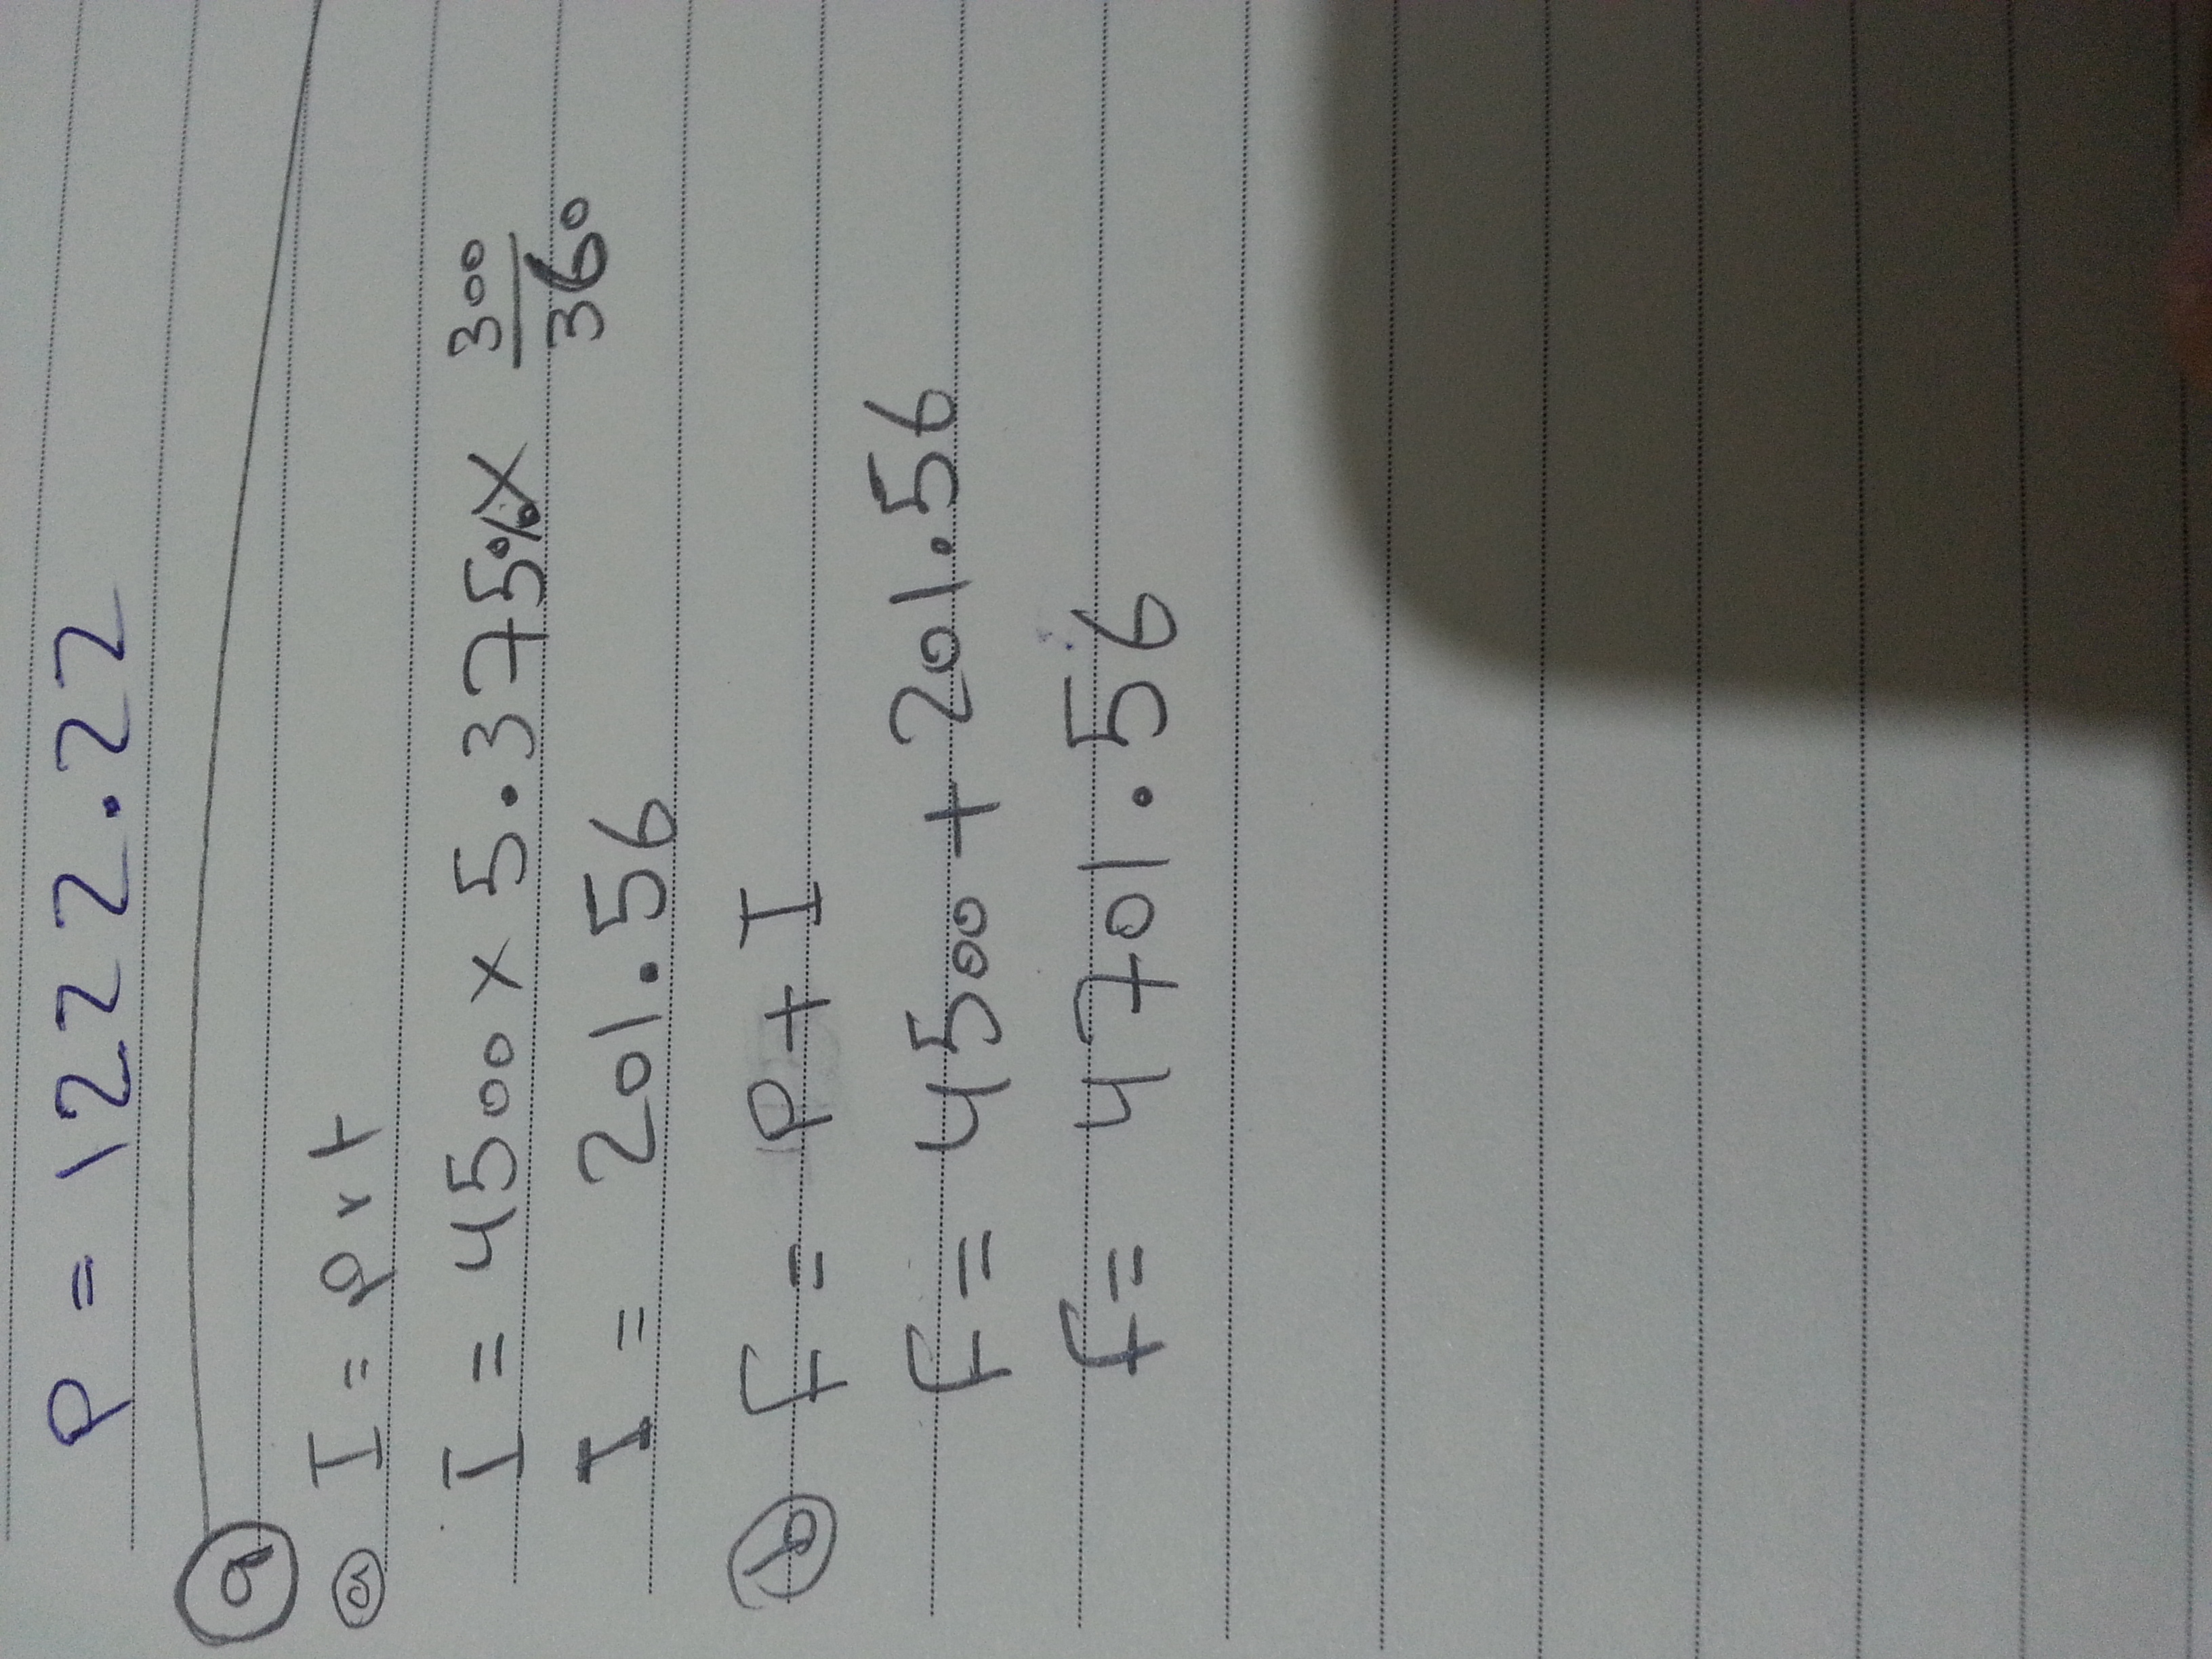 P = 1222.22
9
a I = Prt
I = 4500 x 5.375% x 300/360
I = 201.56
b F = P + I
F = 4500 + 201.56
F = 4701.56